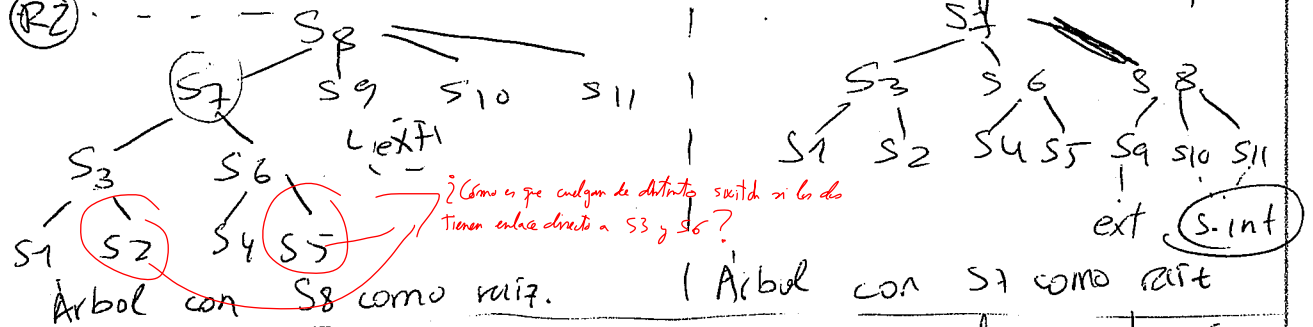 R2
S8
S7 S9 S10 S11
L ext1
S3 S6
S1 S2 S4 S5
¿Cómo es que cuelgan de distinto switch si los dos
tienen enlace directo a S3 y S6?
Árbol con S8 como raiz.
S7
S3 S6 S8
S1 S2 S4 S5 S9 S10 S11
ext S.int
Árbol con S7 como raiz